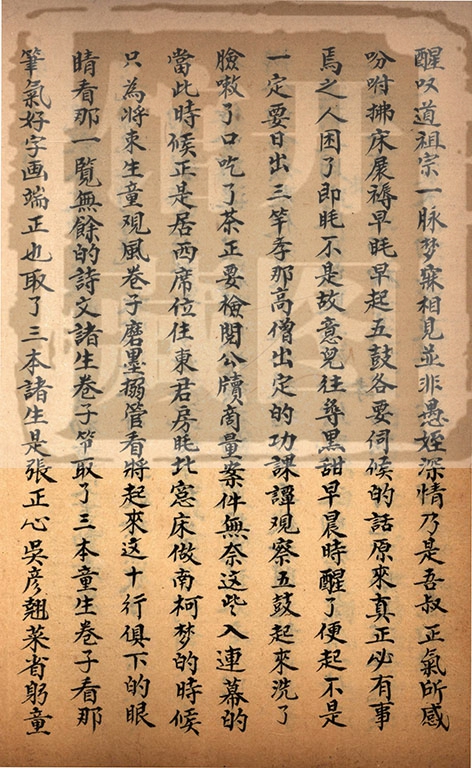 醒叹道祖宗一脉梦寐相見並非愚姪深情乃是吾叔正氣所感
吩咐拂床展褥早眊早起五鼓各要伺候的話原來真正必有事
焉之人困了即眊不是故意兒往尋黑甜早晨時醒了便起不是
一定要日出三竿季那高僧出定的功課譚觀察五鼓起來洗了
臉嗽了口吃了茶正要檢閱公牘商量案件無奈這些入連幕的
當此時候正是居西席位住東君房眊北窓床做南柯梦的時候
只為將来生童观風卷子磨墨搦管看將起來这十行俱下的眼
睛看那一覧無餘的詩文諸生卷子笇取了三本童生卷子看那
筆氣好字画端正也取了三本諸生是張正心吳彦翹菜省躬童